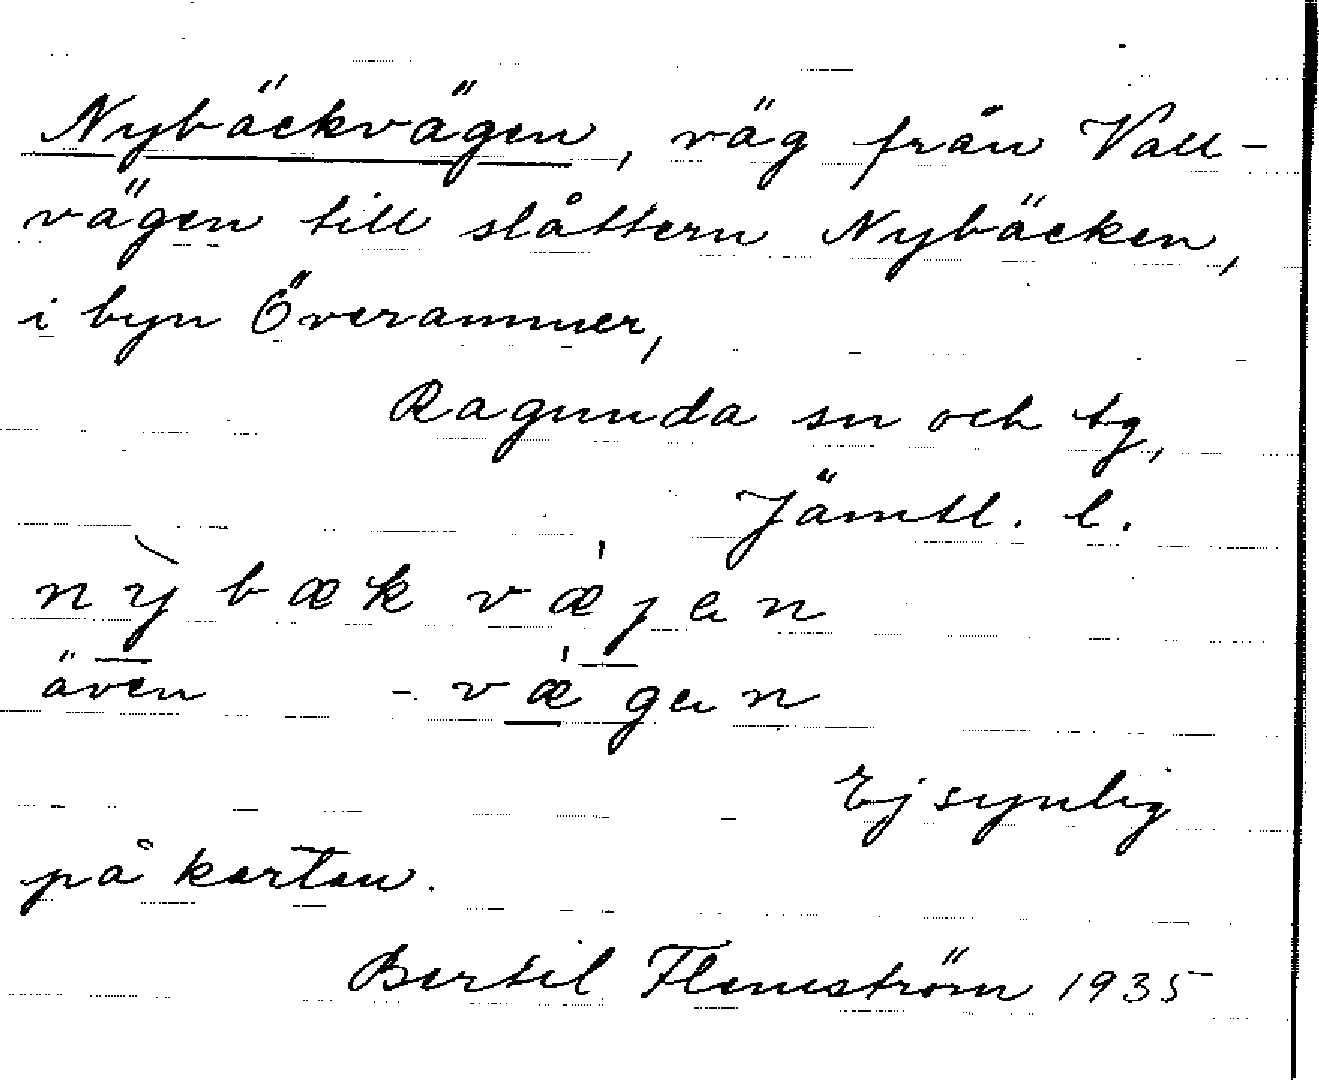 Nybäckvägen, väg från Vall-
vägen till slåttern Nybäcken,
i byn Överammer,
Ragunda sn och tg,
Jämtl. l.
nỳbæk væ̍jen
även - væ̍gen
Ej synlig
på kartan.
Bertil Flemström 1935